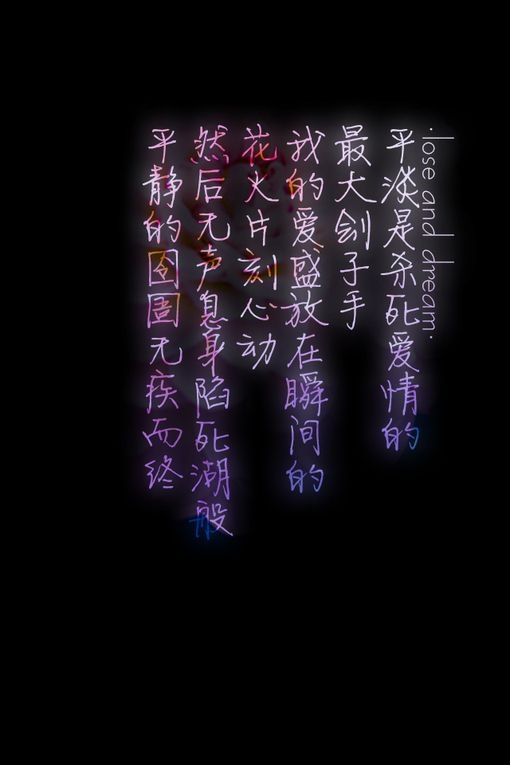 ·lose and dream·
平淡是杀死爱情的
最大刽子手
我的爱盛放在瞬间的
花火片刻心动
然后无声息身陷死潮般
平静的囹圄无疾而终